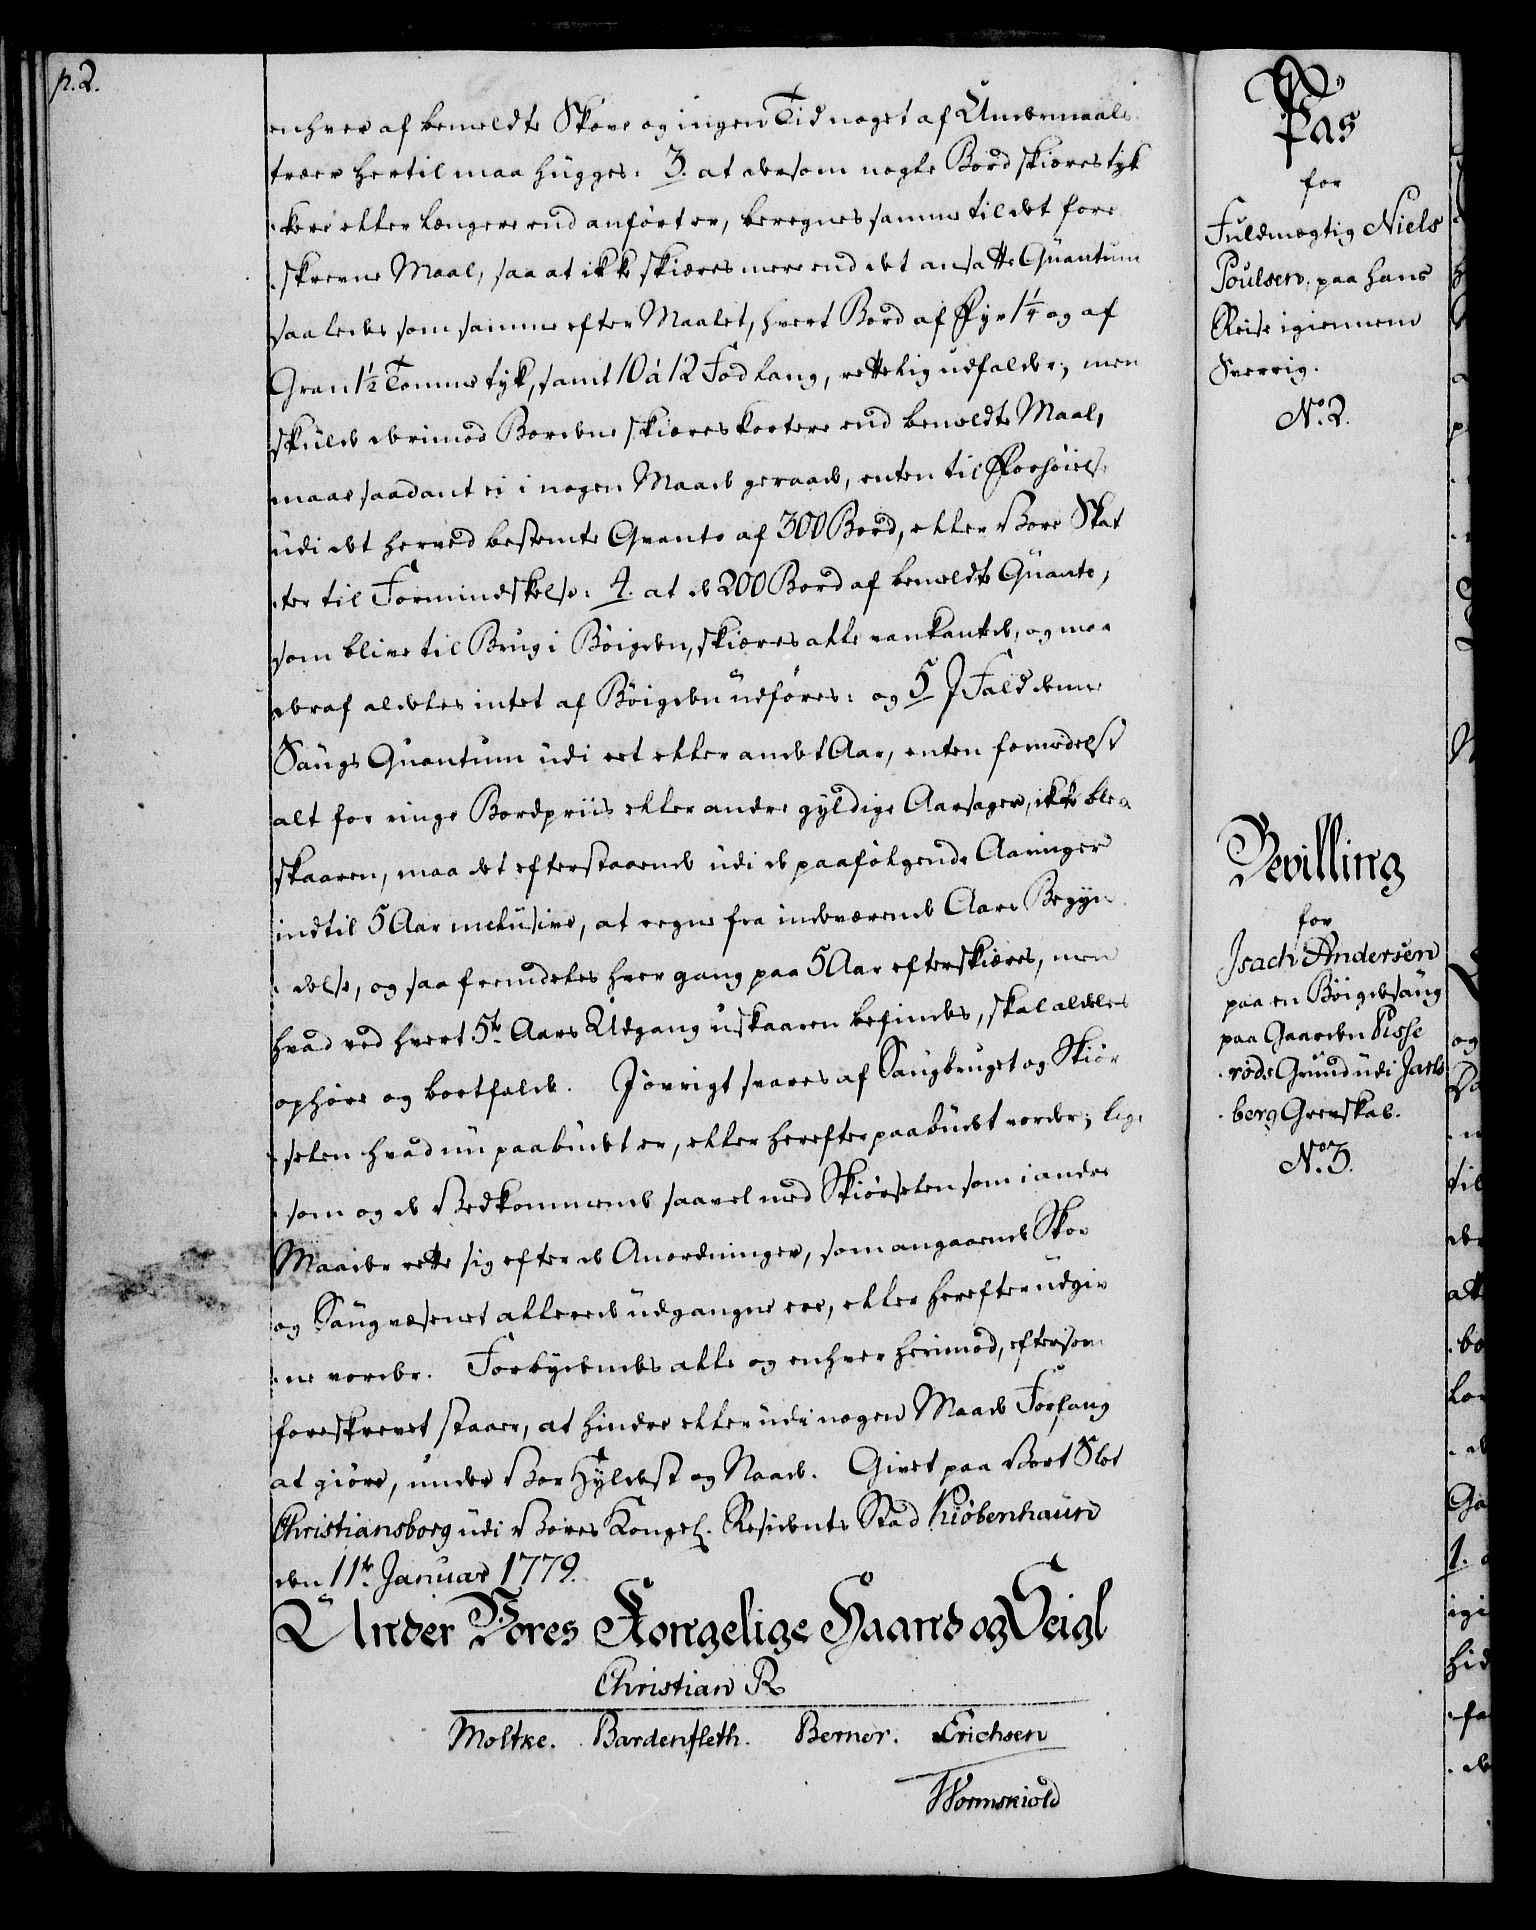 p. 2.
enhver af bemeldte Skove og ingen Tid noget af Undermaals
træer hertil maa hugges: 3. at dersom nogle Bord skiæres tyk
kere eller længere end anført er, beregnes samme til det fore
skrevne Maal, saa at ikke skiæres mere end det ansatte Quantum
saaledes som samme efter Maalet, hvert Bord af Fyr 1¼ og af
Gran 1½ Tomme tyk, samt 10 à 12 Fod lang, rettelig udfalder; men
skulde derimod Bordene skiæres kortere end bemeldte Maal,
maae saadant ei i nogen Maade geraade, enten til Forhøielse
udi det herved bestemte Qvanto af 300 Bord, eller Vore Skat
ter til Formindskelse: 4. at de 200 Bord af bemeldte Quanto,
som blive til Brug i Bøigden, skiæres alle vankantede, og maa
deraf aldeles intet af Bøigden udføres: og 5 J Fald denne
Saugs Quantum udi eet eller andet Aar, enten formedelst
alt for ringe Bordpriis eller andre gyldige Aarsager, ikke blev
skaaren, maa det efterstaaende udi de paafølgende Aaringer
indtil 5 Aar inclusive, at regne fra indeværende Aars Begyn
delse, og saa fremdeles hver gang paa 5 Aar efterskiæres, men
hvad ved hvert 5te Aars Udgang uskaaren befindes, skal aldeles
ophøre og bortfalde. Jøvrigt svares af Saugbruget og Skiør
selen hvad nu paabudet er, eller herefter paabudet vorder; lige
som og de Vedkommende saavel med Skiørselen som i andre
Maader rette sig efter de Anordninger, som angaaende Skov
og Saugvæsenet allerede udgangne ere, eller herefter udgiv
ne vorder. Forbydendes alle og enhver herimod, eftersom
foreskrevet staaer, at hindre eller udi nogen Maade Forfang
at giøre, under Vor Hyldest og Naade. Givet paa Vort Slot
Christiansborg udi Vores Kongel. Residents Stad Kiøbenhaun
den 11te Januar 1779.
Under Vores Kongelige Haand og Seigl
Christian R
Moltke. Bardenfleth. Berner. Erichsen
Wormskiold
Pas
for
Fuldmægtig Niels
Poulsen, paa hans
Reise igiennem
Sverrig.
No. 2.
Bevilling
for
Jsach Andersen
paa en Bøigdesaug
paa Gaarden Pisse
røds Grund udi Jarls
berg Grevskab.
No. 3.